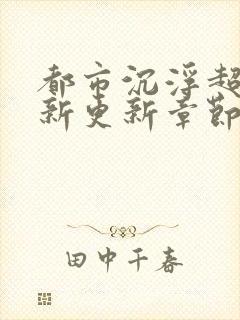 都市沉浮超
新更新章節
田中千春